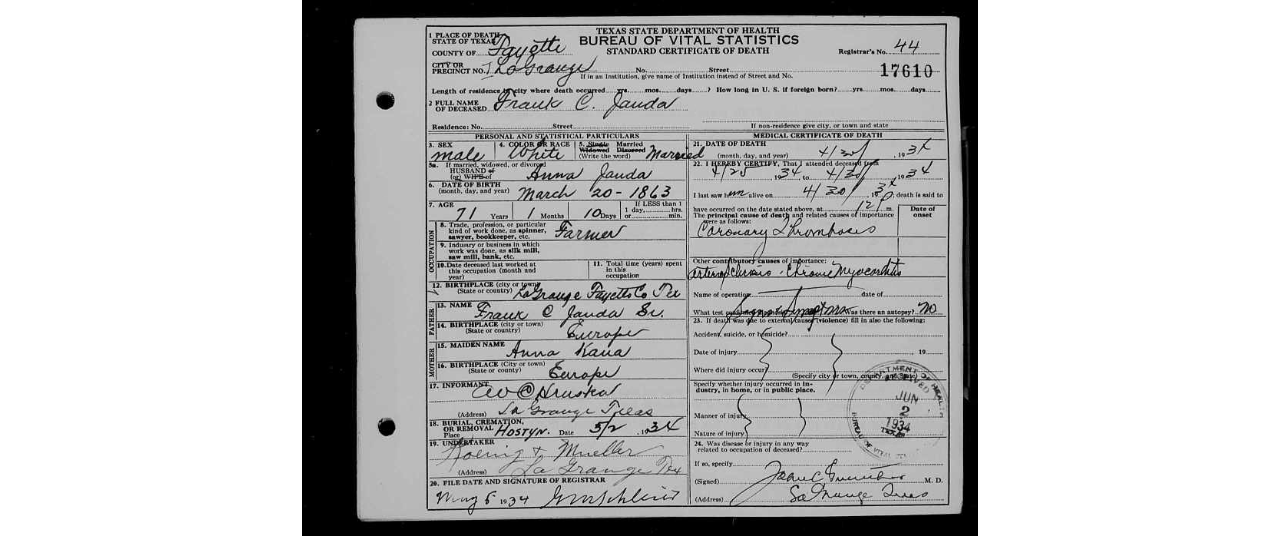 TEXAS STATE DEPARTMENT OF HEALTH
BUREAU OF VITAL STATISTICS
STANDARD CERTIFICATE OF DEATH
1 PLACE OF DEATH
STATE OF TEXAS
COUNTY OF Fayette
Registrar's No. 44
CITY OR
PRECINCT NO. 1 La Grange No. Street
If in an Institution, give name of Institution instead of Street and No.
17610
Length of residence in city where death occurred yrs. mos. days? How long in U. S. if foreign born? yrs. mos. days
2 FULL NAME
OF DECEASED Frank C. Janda
Residence: No. Street
If non-residence give city, or town and state
PERSONAL AND STATISTICAL PARTICULARS
3. SEX male
4. COLOR OR RACE White
5. Single Married
Widowed Divorced
(Write the word) Married
5a. If married, widowed, or divorced
HUSBAND of
(or) WIFE of Anna Janda
6. DATE OF BIRTH
(month, day, and year) March 20 - 1863
7. AGE 71 Years 1 Months 10 Days
If LESS than 1
1 day, hrs.
or min.
OCCUPATION
8. Trade, profession, or particular
kind of work done, as spinner,
sawyer, bookkeeper, etc. Farmer
9. Industry or business in which
work was done, as silk mill,
saw mill, bank, etc.
10. Date deceased last worked at
this occupation (month and
year)
11. Total time (years) spent
in this
occupation
12. BIRTHPLACE (city or town)
(State or country) La Grange Fayette Co Tex
FATHER
13. NAME Frank C Janda Sr.
14. BIRTHPLACE (city or town)
(State or country) Europe
MOTHER
15. MAIDEN NAME Anna
16. BIRTHPLACE (City or town)
(State or country) Europe
17. INFORMANT Hruska
(Address) La Grange Texas
18. BURIAL, CREMATION,
OR REMOVAL
Place Hostyn. Date 5/2 1934
19. UNDERTAKER
Koenig & Mueller
(Address) La Grange Tex
20. FILE DATE AND SIGNATURE OF REGISTRAR
May 5 1934
MEDICAL CERTIFICATE OF DEATH
21. DATE OF DEATH
(month, day, and year) 4/30/ 1934
22. I HEREBY CERTIFY, That I attended deceased from
4/25 1934 to 4/30/ 1934
I last saw him alive on 4/30/ 1934 death is said to
have occurred on the date stated above, at 12 P m.
The principal cause of death and related causes of importance
were as follows:
Date of
onset
Coronary Thrombosis
Other contributory causes of importance:
Chronic Myocarditis
Name of operation date of
What test Was there an autopsy? No
23. If death was due to external causes (violence) fill in also the following:
Accident, suicide, or homicide?
Date of injury 19
Where did injury occur?
(Specify city or town, county
Specify whether injury occurred in in-
dustry, in home, or in public place.
Manner of injury
Nature of injury
DEPARTMENT OF HEALTH
RECEIVED
JUN
2
1934
BUREAU OF VITAL
24. Was disease or injury in any way
related to occupation of deceased?
If so, specify
(Signed) M. D.
(Address) La Grange Texas